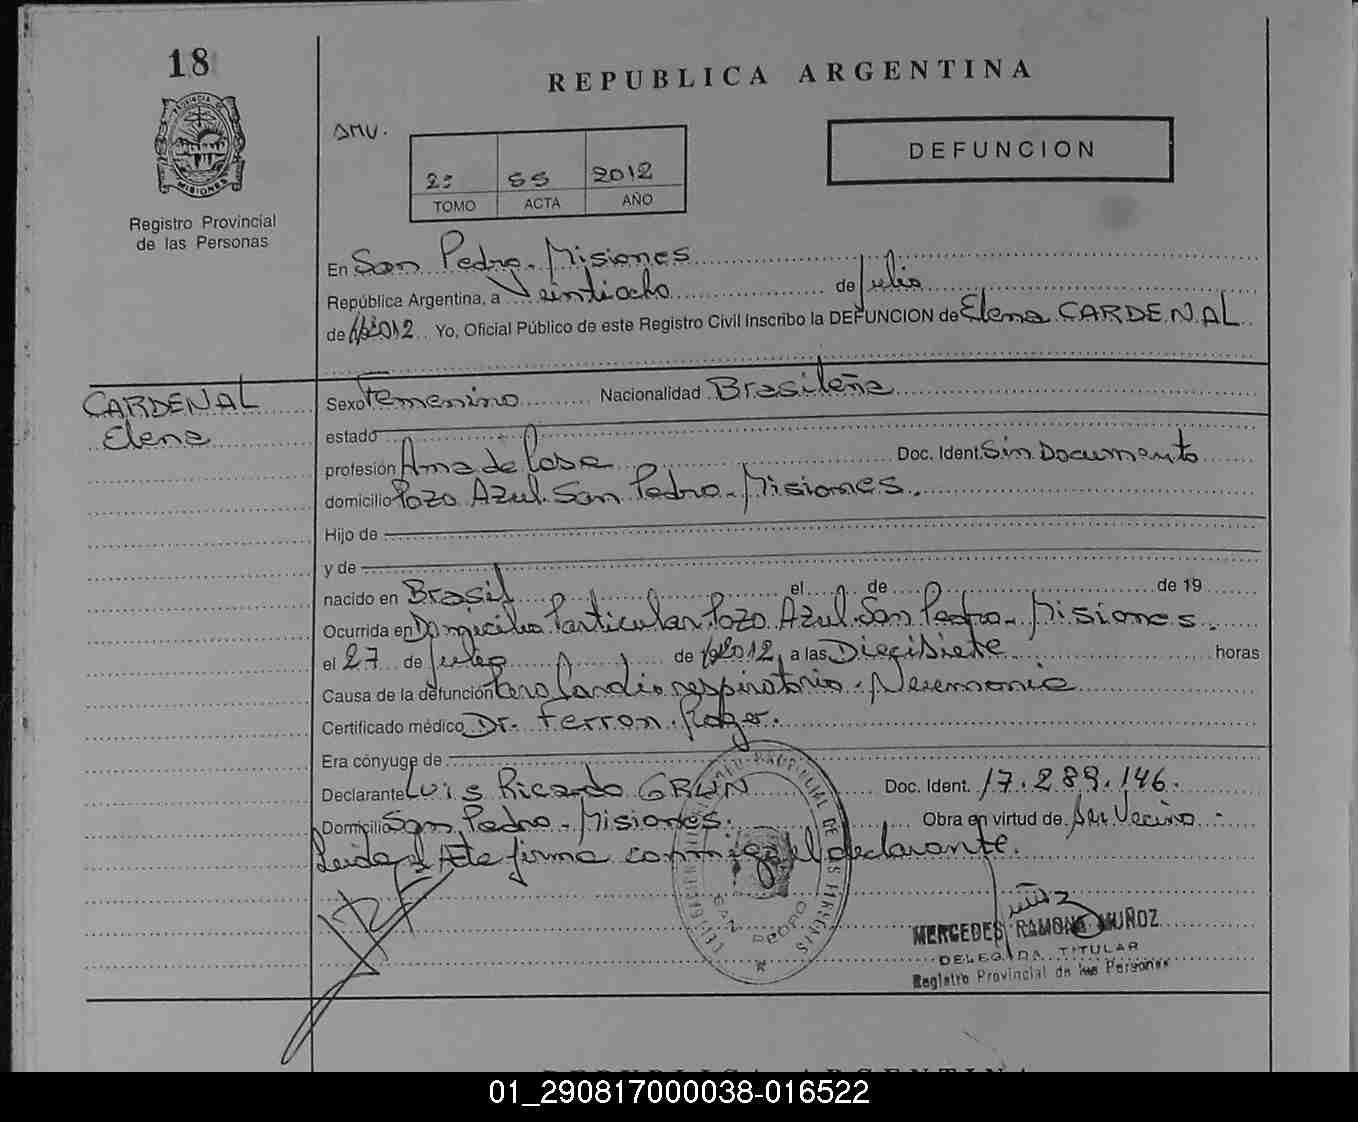 18
REPUBLICA ARGENTINA
PROVINCIA DE
MISIONES
Registro Provincial
de las Personas
DMV.
2º SS 2012
TOMO ACTA AÑO
DEFUNCION
En San Pedro - Misiones
República Argentina, a Veintiocho de Julio
de 2012 Yo, Oficial Público de este Registro Civil Inscribo la DEFUNCION de Elena CARDENAL
CARDENAL
Elena
Sexo Femenino Nacionalidad Brasileña
estado
profesión Ama de Casa Doc. Ident. Sin Documento
domicilio Pozo Azul. San Pedro - Misiones.
Hijo de
y de
nacido en Brasil el de de 19
Ocurrida en Domicilio Particular Pozo Azul. San Pedro - Misiones.
el 27 de Julio de 2012, a las Diecisiete horas
Causa de la defunción Paro Cardio respiratorio - Neumonia
Certificado médico Dr. Ferron Roger.
Era cónyuge de
Declarante Luis Ricardo GRUN Doc. Ident. 17.289.146.
Domicilio San Pedro - Misiones. Obra en virtud de Ser Vecino -
Leida el Acta firma conmigo el declarante.
SAN PEDRO
MERCEDES RAMONA MUÑOZ
DELEGADA TITULAR
Registro Provincial de las Personas
REPUBLICA ARGENTINA
01_290817000038-016522